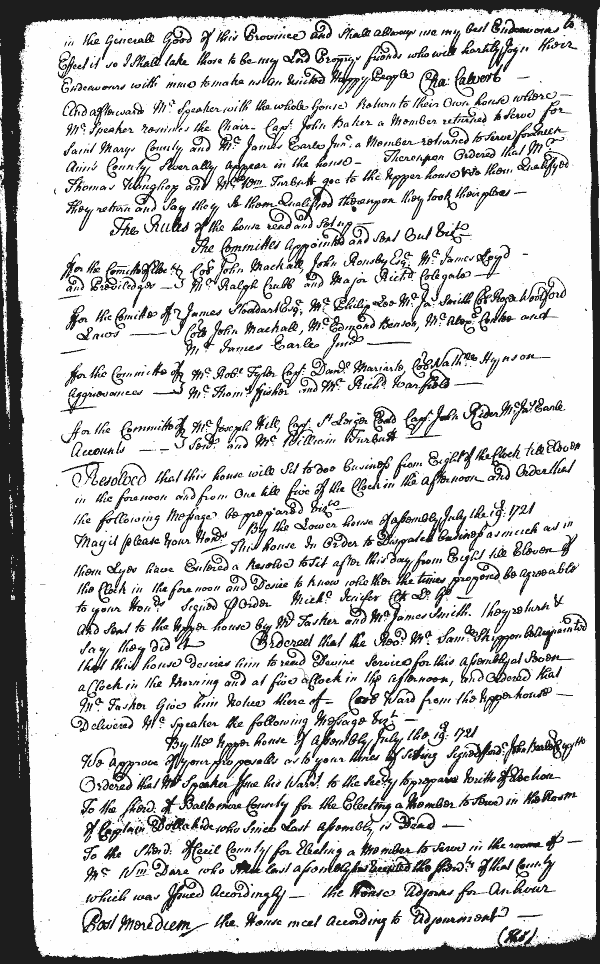 in the Generall Good of this Province and Shall always use my best Endeavours to
Effect it so I shall take those to be my Lord Proprys friends who will hartily Joyn their
Endeavours with mine to make us an United Happy People Cha: Calvert
And afterward Mr Speaker with the whole house Return to their Own house where
Mr Speaker resumes the Chair. Capt John Baker a Member returned to Serve for
Saint Marys County and Mr James Earle Junr a Member returned to Serve for Queen
Ann's County Severally appear in the house — Thereupon Ordered that Mr
Thomas Trughop and Mr Wm Turbutt goe to the Upper house to see them Quallifyed
they return and Say they saw them Quallifyed thereupon they took their places —
The Rules of the house read and set up —
The Committees Appointed and Sent Out Vizt
ffor the Comittee of Elecs & Coll John Mackall, John Rousby Esqr Mr James Loyd
and Priviledges — Mr Ralph Crabb and Major Richd Colegate —
ffor the Comittee of James Stoddart Esqr, Mr Philip Lee Mr Jas Smith Coll Roger Woolford
Laws — Coll John Mackall, Mr Edmond Benson, Mr Alexr Contee and
Mr James Earle Junr
ffor the Committee of Mr Robt Tyler Capt Danl Mariarte, Coll Nathll Hynson
Aggrievances — Mr Thoms ffisher and Mr Richd Warfield —
ffor the Committee of Mr Joseph Hill, Capt St Leiger Codd Capt John Rider Mr Jas Earle
Accounts — Senr and Mr William Turbutt
Resolved that this house will Sit to doe business from Eight of the Clock till Eleven
in the forenoon and from One till five of the Clock in the afternoon and Order that
the following Message be prepared vizt
By the Lower house of Assembly July the 19th 1721
May it please Your Honrs This house In Order to Dispatch business as much as in
them Lyes have Entered a Resolve to Sit after this day from Eight till Eleven of
the Clock in the forenoon and Desire to know whether the times proposed be Agreeable
to your Honrs Signed p Order Michl Jenifer Clk Lr Ho
And Sent to the Upper house by Mr Tasker and Mr James Smith. they return &
Say they did it Ordered that the Revd Mr Saml Skippon be Acquainted
that this house desires him to read Devine Service for this Assembly at Seven
a Clock in the Morning and at five a Clock in the Afternoon, and Ordered that
Mr Tasker Give him Notice there of — Coll Ward from the Upper house —
Delivered Mr Speaker the following Message Vizt —
By the Upper house of Assembly July the 19th 1721
We Approve of your proposalls as to your times of Sitting Signed p Ordr John Beale
Ordered that Mr Speaker Issue his Warrt to the Secry to prepare Writts of Election
To the Sherd of Baltemore County for the Electing a Member to Serve in the Room
of Captain Dollahide who Since Last Assembly is Dead —
To the Sherd of Cecil County for Electing a Member to Serve in the room of —
Mr Wm Dare who Since Last Assembly has accepted the Sherds of that County
which was Issued Accordingly — the House Adjorns for An hour
Post Merediem the House meet According to Adjournment —